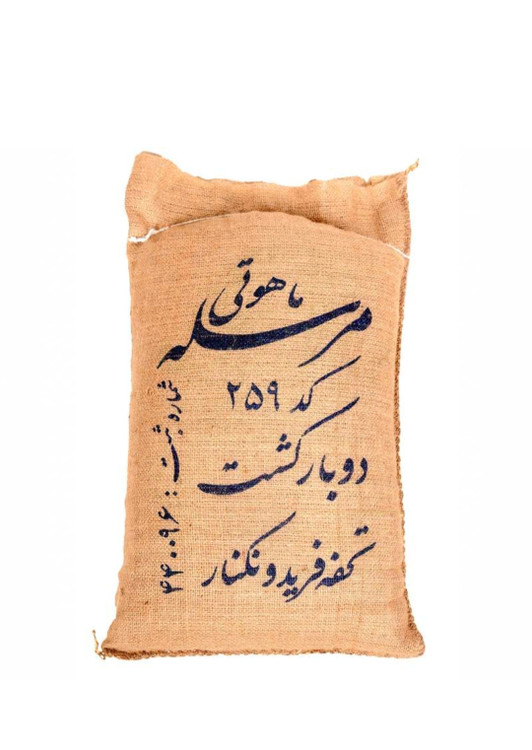 ماهوتی
مرسله
کد ۲۵۹
دوبار کشت
تحفه فریدونکنار
شماره ثبت : ۴۴۰۰۹۶